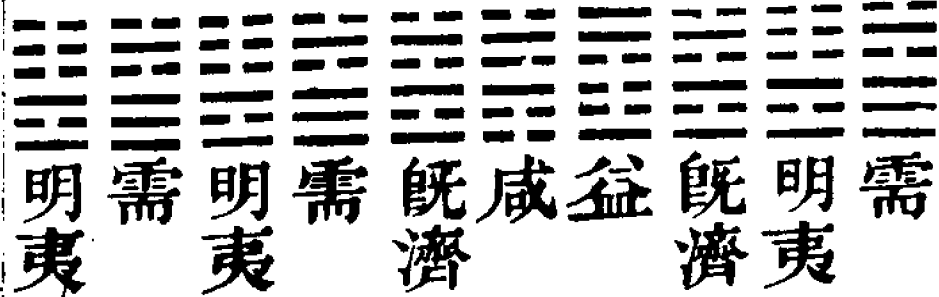 需
明夷
既濟
益
咸
既濟
需
明夷
需
明夷